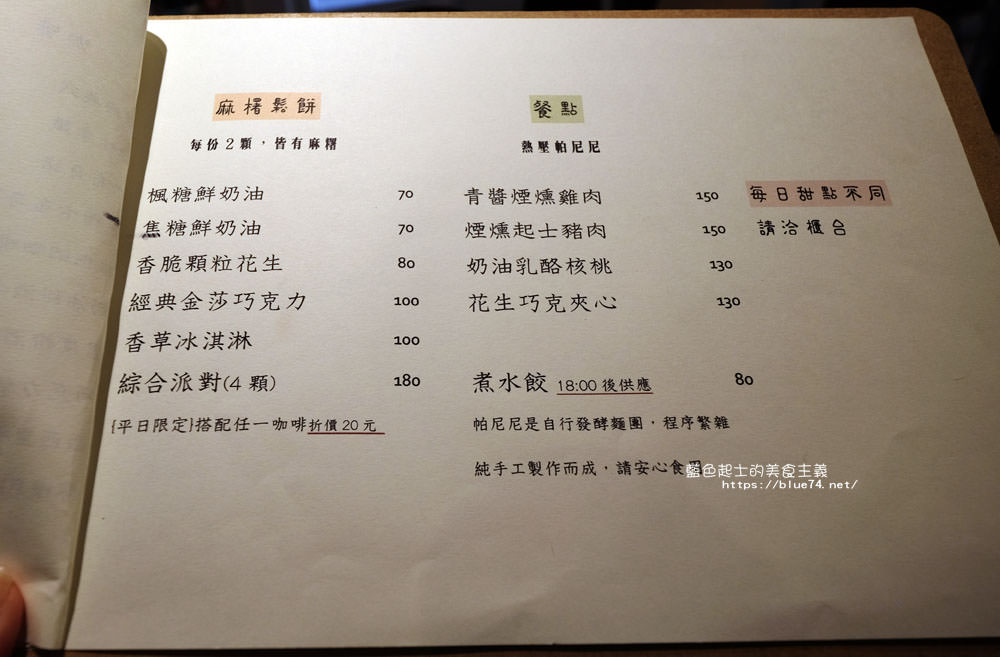 麻糬鬆餅
每份2顆，皆有麻糬
楓糖鮮奶油 70
焦糖鮮奶油 70
香脆顆粒花生 80
經典金莎巧克力 100
香草冰淇淋 100
綜合派對(4 顆) 180
{平日限定}搭配任一咖啡折價 20 元
餐點
熱壓帕尼尼
青醬煙燻雞肉 150
煙燻起士豬肉 150
奶油乳酪核桃 130
花生巧克夾心 130
煮水餃 18:00 後供應 80
帕尼尼是自行發酵麵團，程序繁雜
純手工製作而成，請安心食用
每日甜點不同
請洽櫃台
藍色起士的美食主義
https://blue74.net/